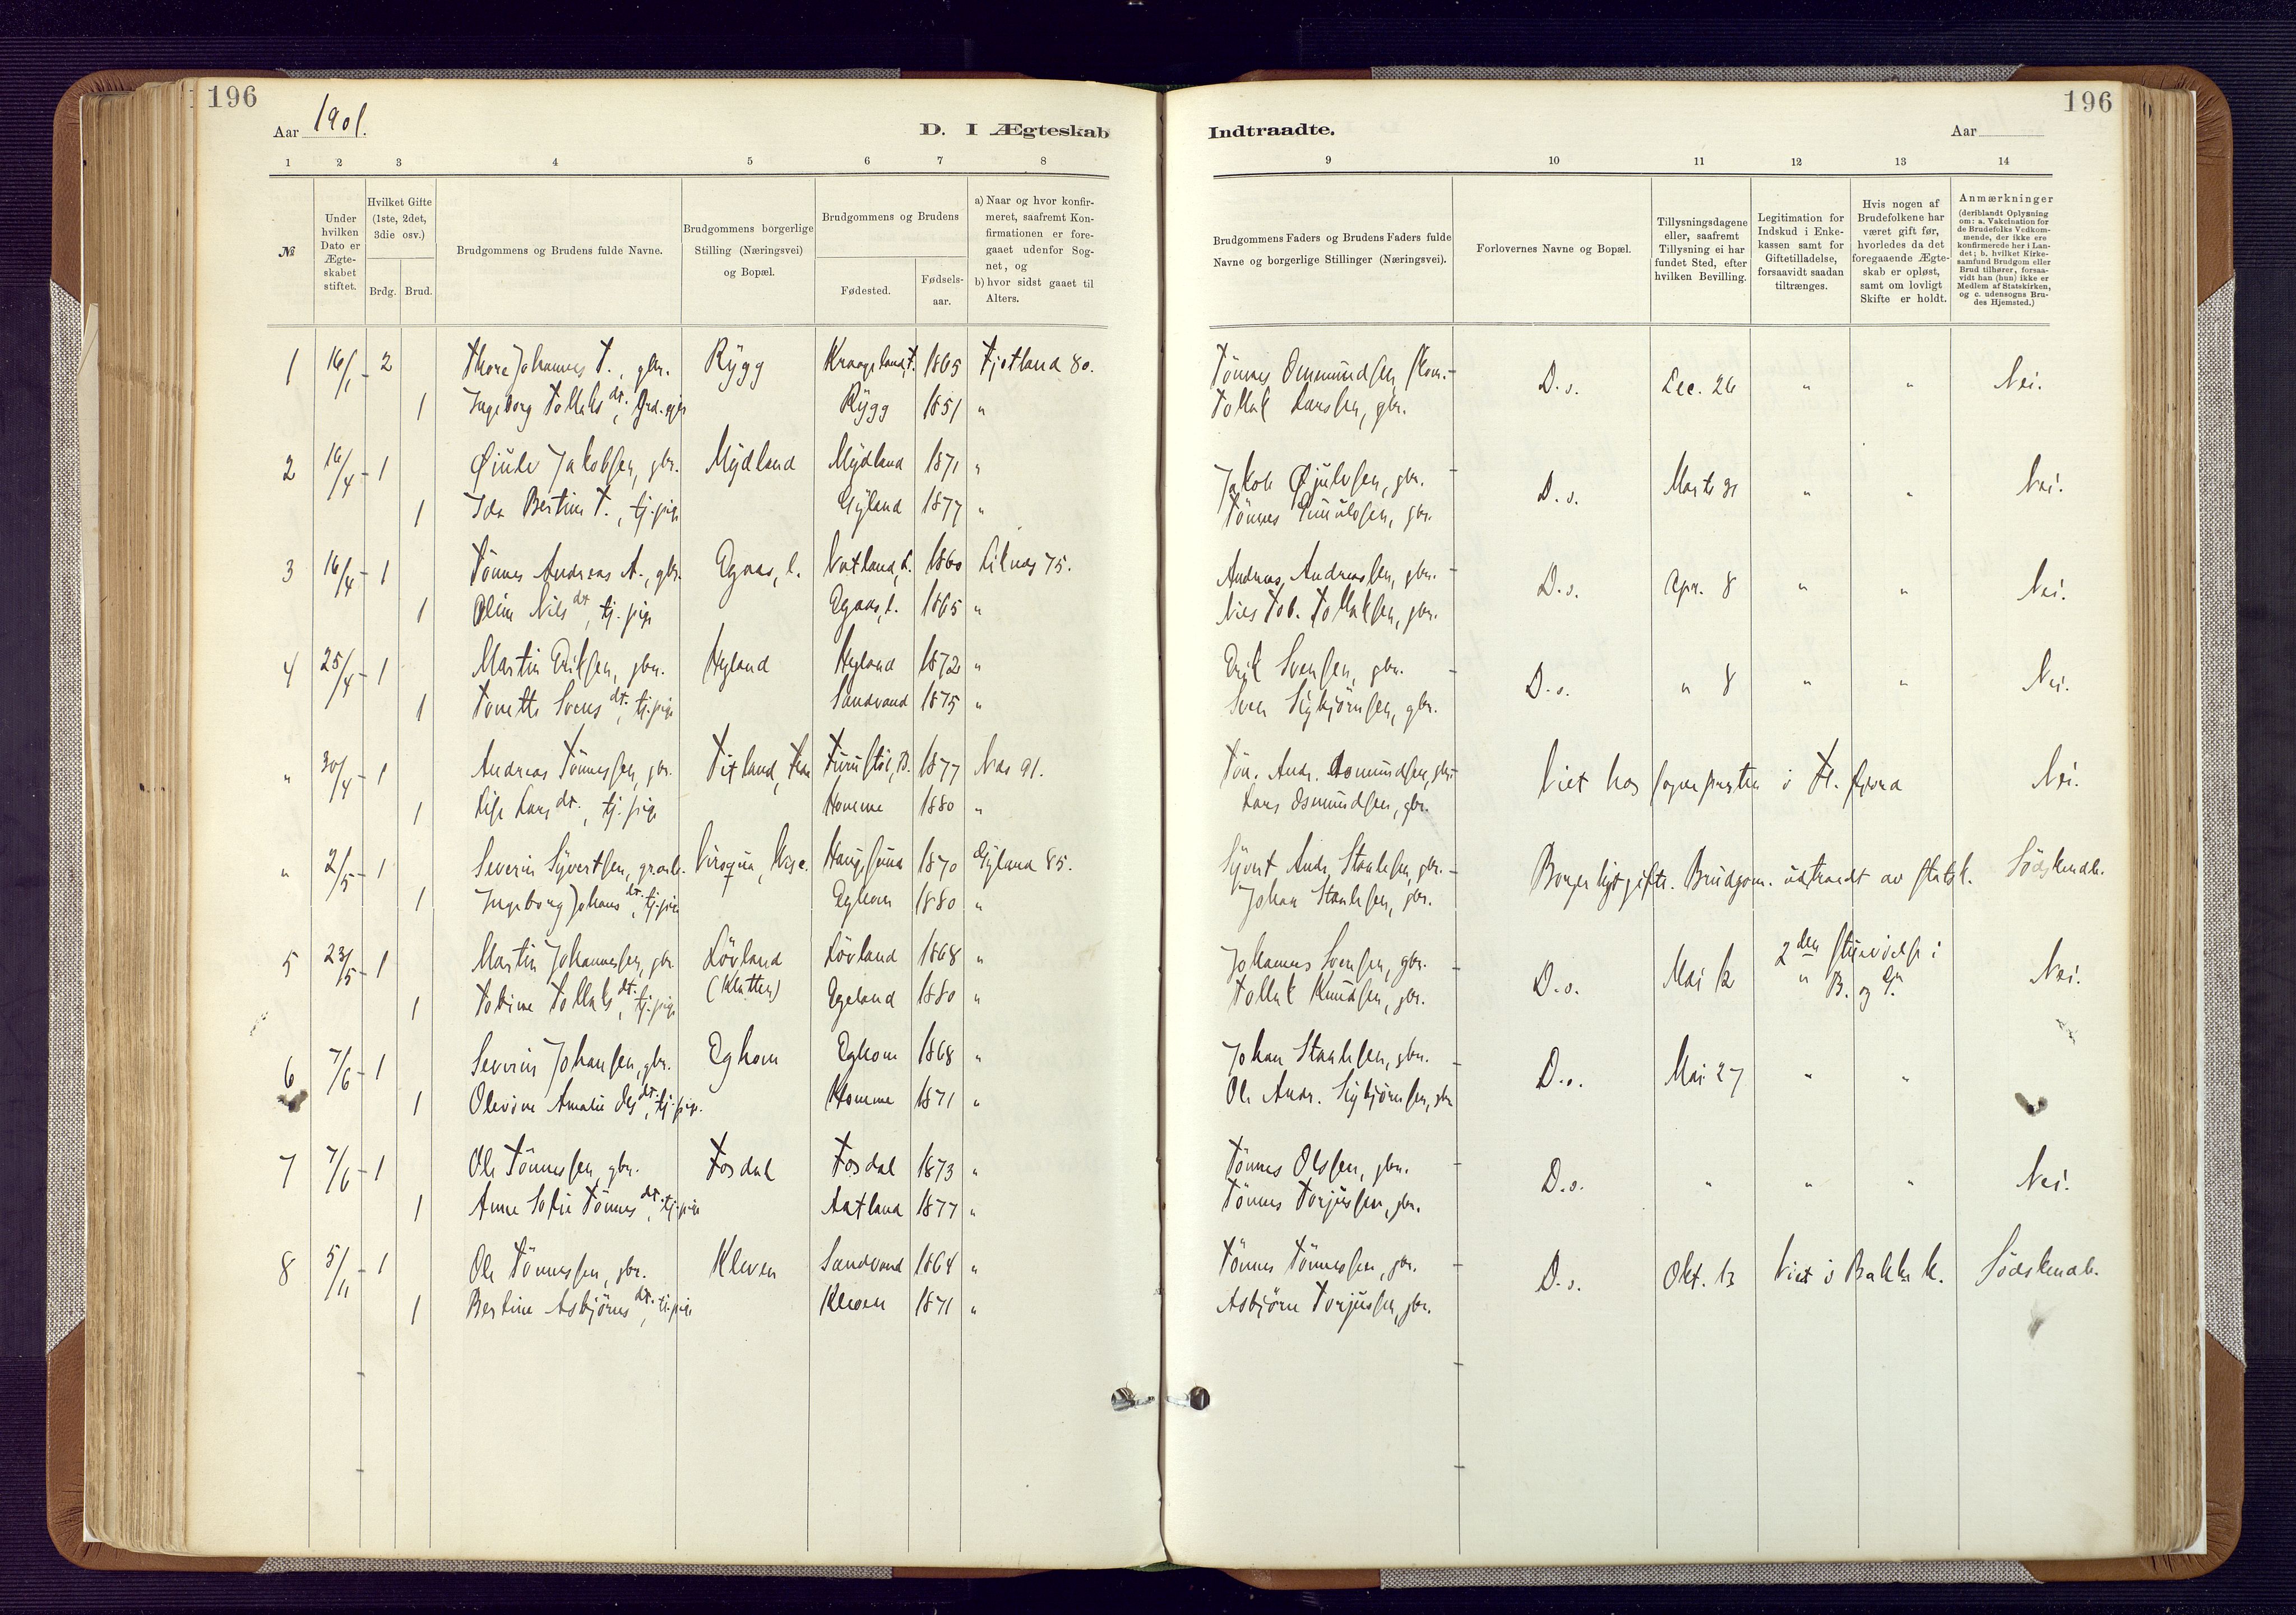 196
196
Aar 1901.
D. I Ægteskab
Indtraadte.
Aar
1 2 3 4 5 6 7 8
9 10 11 12 13 14
№
Under hvilken Dato er Ægte- skabet stiftet.
Hvilket Gifte (1ste, 2det, 3die osv.)
Brdg. Brud.
Brudgommens og Brudens fulde Navne.
Brudgommens borgerlige Stilling (Næringsvei) og Bopæl.
Brudgommens og Brudens
Fødested.
Fødsels- aar.
a) Naar og hvor konfir- meret, saafremt Kon- firmationen er fore- gaaet udenfor Sog- net, og
b) hvor sidst gaaet til Alters.
Brudgommens Faders og Brudens Faders fulde Navne og borgerlige Stillinger (Næringsvei).
Forlovernes Navne og Bopæl.
Tillysningsdagene eller, saafremt Tillysning ei har fundet Sted, efter hvilken Bevilling.
Legitimation for Indskud i Enke- kassen samt for Giftetilladelse, forsaavidt saadan tiltrænges.
Hvis nogen af Brudefolkene har været gift før, hvorledes da det foregaaende Ægte- skab er opløst, samt om lovligt Skifte er holdt.
Anmærkninger (deriblandt Oplysning om: a. Vakcination for de Brudefolks Vedkom- mende, der ikke ere konfirmerede her i Lan- det; b. hvilket Kirke- samfund Brudgom eller Brud tilhører, forsaa- vidt han (hun) ikke er Medlem af Statskirken, og c. udensogns Bru- des Hjemsted.)
1 16/1 - 2 Thore Johannes T., gbr. Rygg 1865 Fjotland 80. Tönnes D.s. Dec. 26 " " Nei.
1 Ingeborg Tollaks dt., Rygg 1851 " Tollak Larssen, gbr.
2 16/4 - 1 Øiulv Jakobsen, gbr. Mydland Mydland 1871 " Jakob Øjulvsen, gbr. D.s. Marts 31 " " Nei.
1 Ida Bertine T., tj.pige Gyland 1877 " Tönnes gbr.
3 16/4 - 1 Tönnes Andreas A., gbr. Egaas, l. Vatland, l. 1860 Liknes 75. Andreas Andreassen, gbr. D.s. Apr. 8 " " Nei.
1 Oline Nils dt., tj.pige Egaas, l. 1865 " Nils Tob. Tollaksen, gbr.
4 25/4 - 1 Martin Eriksen, gbr. Hyland Hyland 1872 " Erik Svensen, gbr. D.s. " 8 " " Nei.
1 Tonette Svens dt., tj.pige Sandvand 1875 " Sven Sigbjörnsen, gbr.
" 30/4 - 1 Andreas Tönnessen, gbr. 1877 Nes 91. Tön. Andr. Aosmundsen, gbr. Viet hos sognepresten i Nei.
1 Lise Lars dt., tj.pige Homme 1880 " Lars Osmundsen, gbr.
" 2/5 - 1 Severin Syvertsen, Viroqua, 1870 Gyland 85. Syvert Andr. Stanlesen, gbr. Borgerligt gifte. Brudgom. udtraadt av statsk. Södskendb.
1 Ingeborg Johans dt., tj.pige Eghom 1880 " Johan Stanlesen, gbr.
5 23/5 - 1 Martin Johannessen, gbr. Lövland (Kletten) Lövland 1868 " Johannes Svensen, gbr. D.s. Mai 12 2den i B. og G. Nei.
1 Tobine Tollaks dt., tj.pige Egeland 1880 " Tollak Knudsen, gbr.
6 7/6 - 1 Severin Johansen, gbr. Eghom Eghom 1868 " Johan Stanlesen, gbr. D.s. Mai 27 " "
1 Olevine Amalie Ols dt., tj.pige. Homme 1871 " Ole Andr. Sigbjörnsen, gbr.
7 7/6 - 1 Ole Tönnessen, gbr. Fosdal Fosdal 1873 " Tönnes Olssen, gbr. D.s. " " " Nei.
1 Anne Sofie Tönnes dt., tj.pige Aatland 1877 " Tönnes Torjussen, gbr.
8 5/11 - 1 Ole Tönnessen, gbr. Kleven Sandvand 1864 " Tönnes Tönnessen, gbr. D.s. Okt. 13 Viet i Bakke k. Södskendb.
1 Bertine Asbjörns dt., tj.pige Kleven 1871 " Asbjörn Torjussen, gbr.